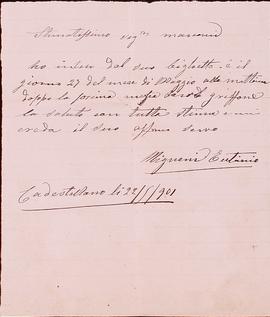 Stimatissimo Sigr marconi
ho inteso dal suo biglietto. è il
giorno 27 del mese di Maggio alla mattina
doppo la prima messa
la saluto con tutta stima e mi
creda il suo affmo servo
Mignani Eutimio
Cadestellano li 22/5/901